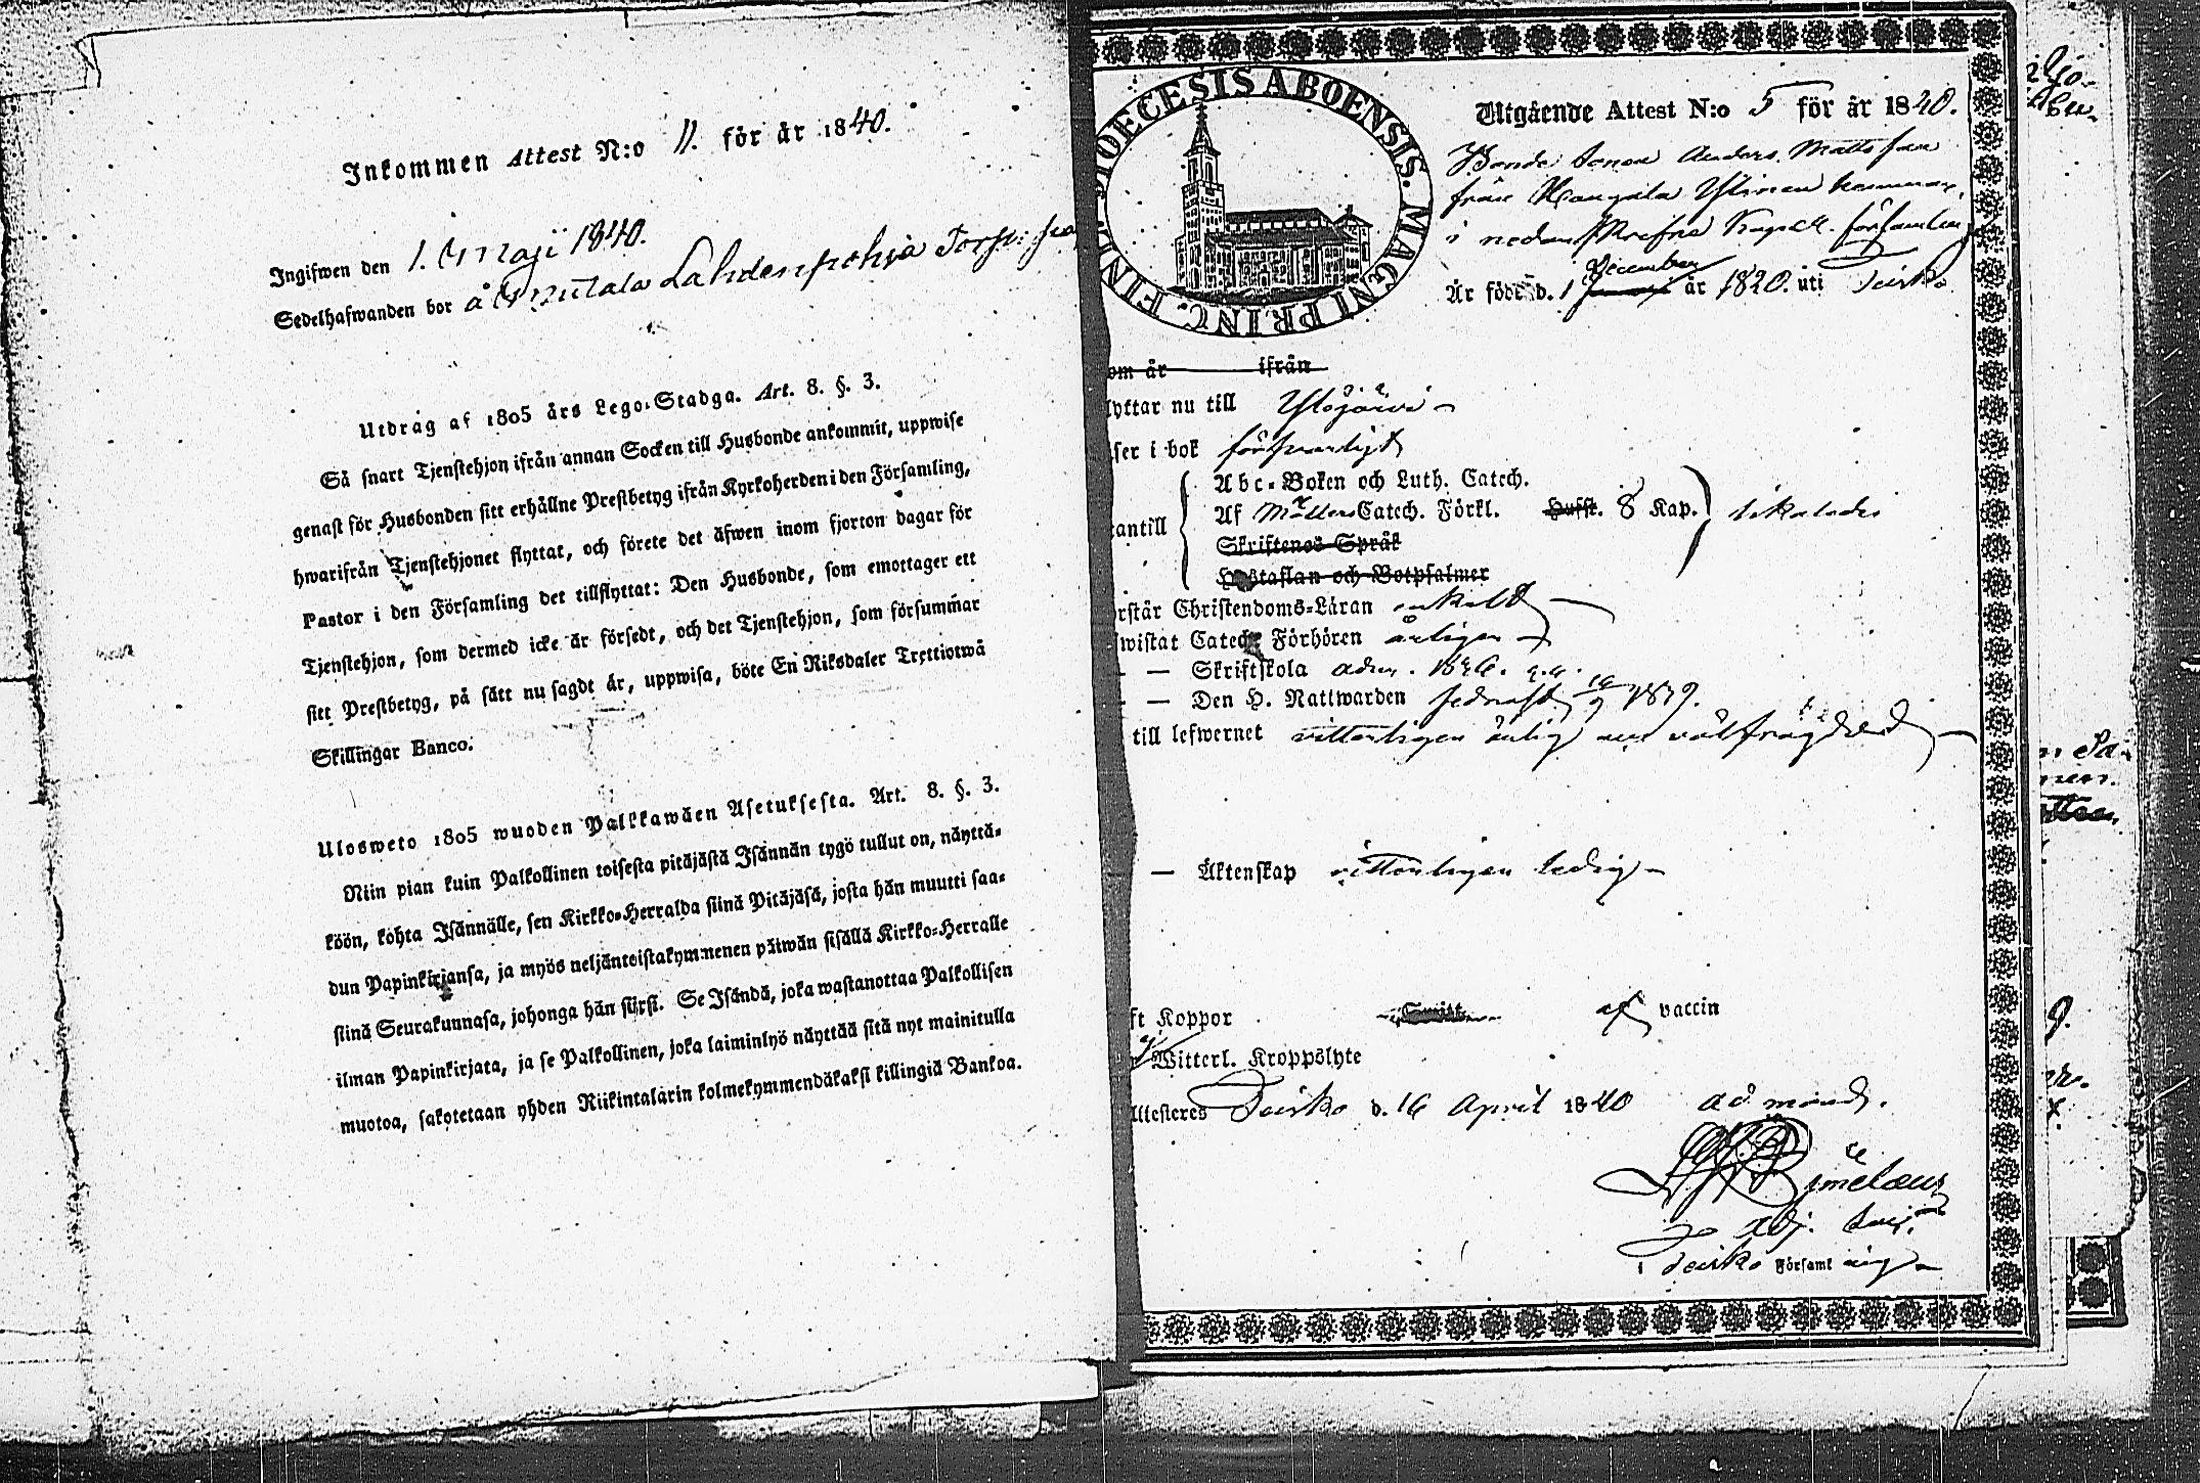 Inkommen Attest N:o 11. för år 1840.
Ingifwen den 1. Maji 1840.
Sedelhafwanden bor å Mutala Lahdenpohja Torp
Utdrag af 1805 års Lego-Stadga. Art. 8. §. 3.
Så snart Tjenstehjon ifrån annan Socken till Husbonde ankommit, uppwise
genast för Husbonden sitt erhållne Prestbetyg ifrån Kyrkoherden i den Församling,
hwarifrån Tjenstehjonet flyttat, och förete det äfwen inom fjorton dagar för
Pastor i den Församling det tillflyttat: Den Husbonde, som emottager ett
Tjenstehjon, som dermed icke är försedt, och det Tjenstehjon, som försummar
sitt Prestbetyg, på sätt nu sagdt är, uppwisa, böte En Riksdaler Trettiotwå
Skillingar Banco.
Ulosweto 1805 wuoden Palkkawäen Asetuksesta. Art. 8. §. 3.
Niin pian kuin Palkollinen toisesta pitäjästä Isännän tygö tullut on, näyttä-
köön, kohta Isännälle, sen Kirkko-Herralda siinä Pitäjäsä, josta hän muutti saa-
dun Papinkirjansa, ja myös neljäntoistakymmenen päiwän sisällä Kirkko-Herralle
siinä Seurakunnasa, johonga hän siirsi. Se Isändä, joka wastanottaa Palkollisen
ilman Papinkirjata, ja se Palkollinen, joka laiminlyö näyttää sitä nyt mainitulla
muotoa, sakotetaan yhden Riikintalarin kolmekymmendäkaksi killingiä Bankoa.
DIOECESIS ABOENSIS. MAGNI PRINC. FINL.
Utgående Attest N:o 5 för år 1840.
Bonde Sonen Anders Mattsson
från Ylinen hemman,
i nedanskrefne Kapell församling
December
Är född d. 1 år 1820. uti Teisko
om år ifrån
lyttar nu till Ylöjärvi
ser i bok försvarligt
Abc-Boken och Luth. Catech.
antill Af Möllers Catech. Förkl. Hufst. 8 Kap.
Skriftenes Språk
Hustaflan och Botpsalmer
rstår Christendoms-Läran enkelt
wistat Catech. Förhören årligen
— Skriftskola adm. 1836.
— Den H. Nattwarden sednast 1839.
till lefwernet vitterligen ärlig och välfrägdad
— Äktenskap vitterligen ledig
ft Koppor af vaccin
Witterl. Kroppslyte
Attesteres Teisko d. 16 April 1840 ad mand.
Adj.
i Teisko Församling